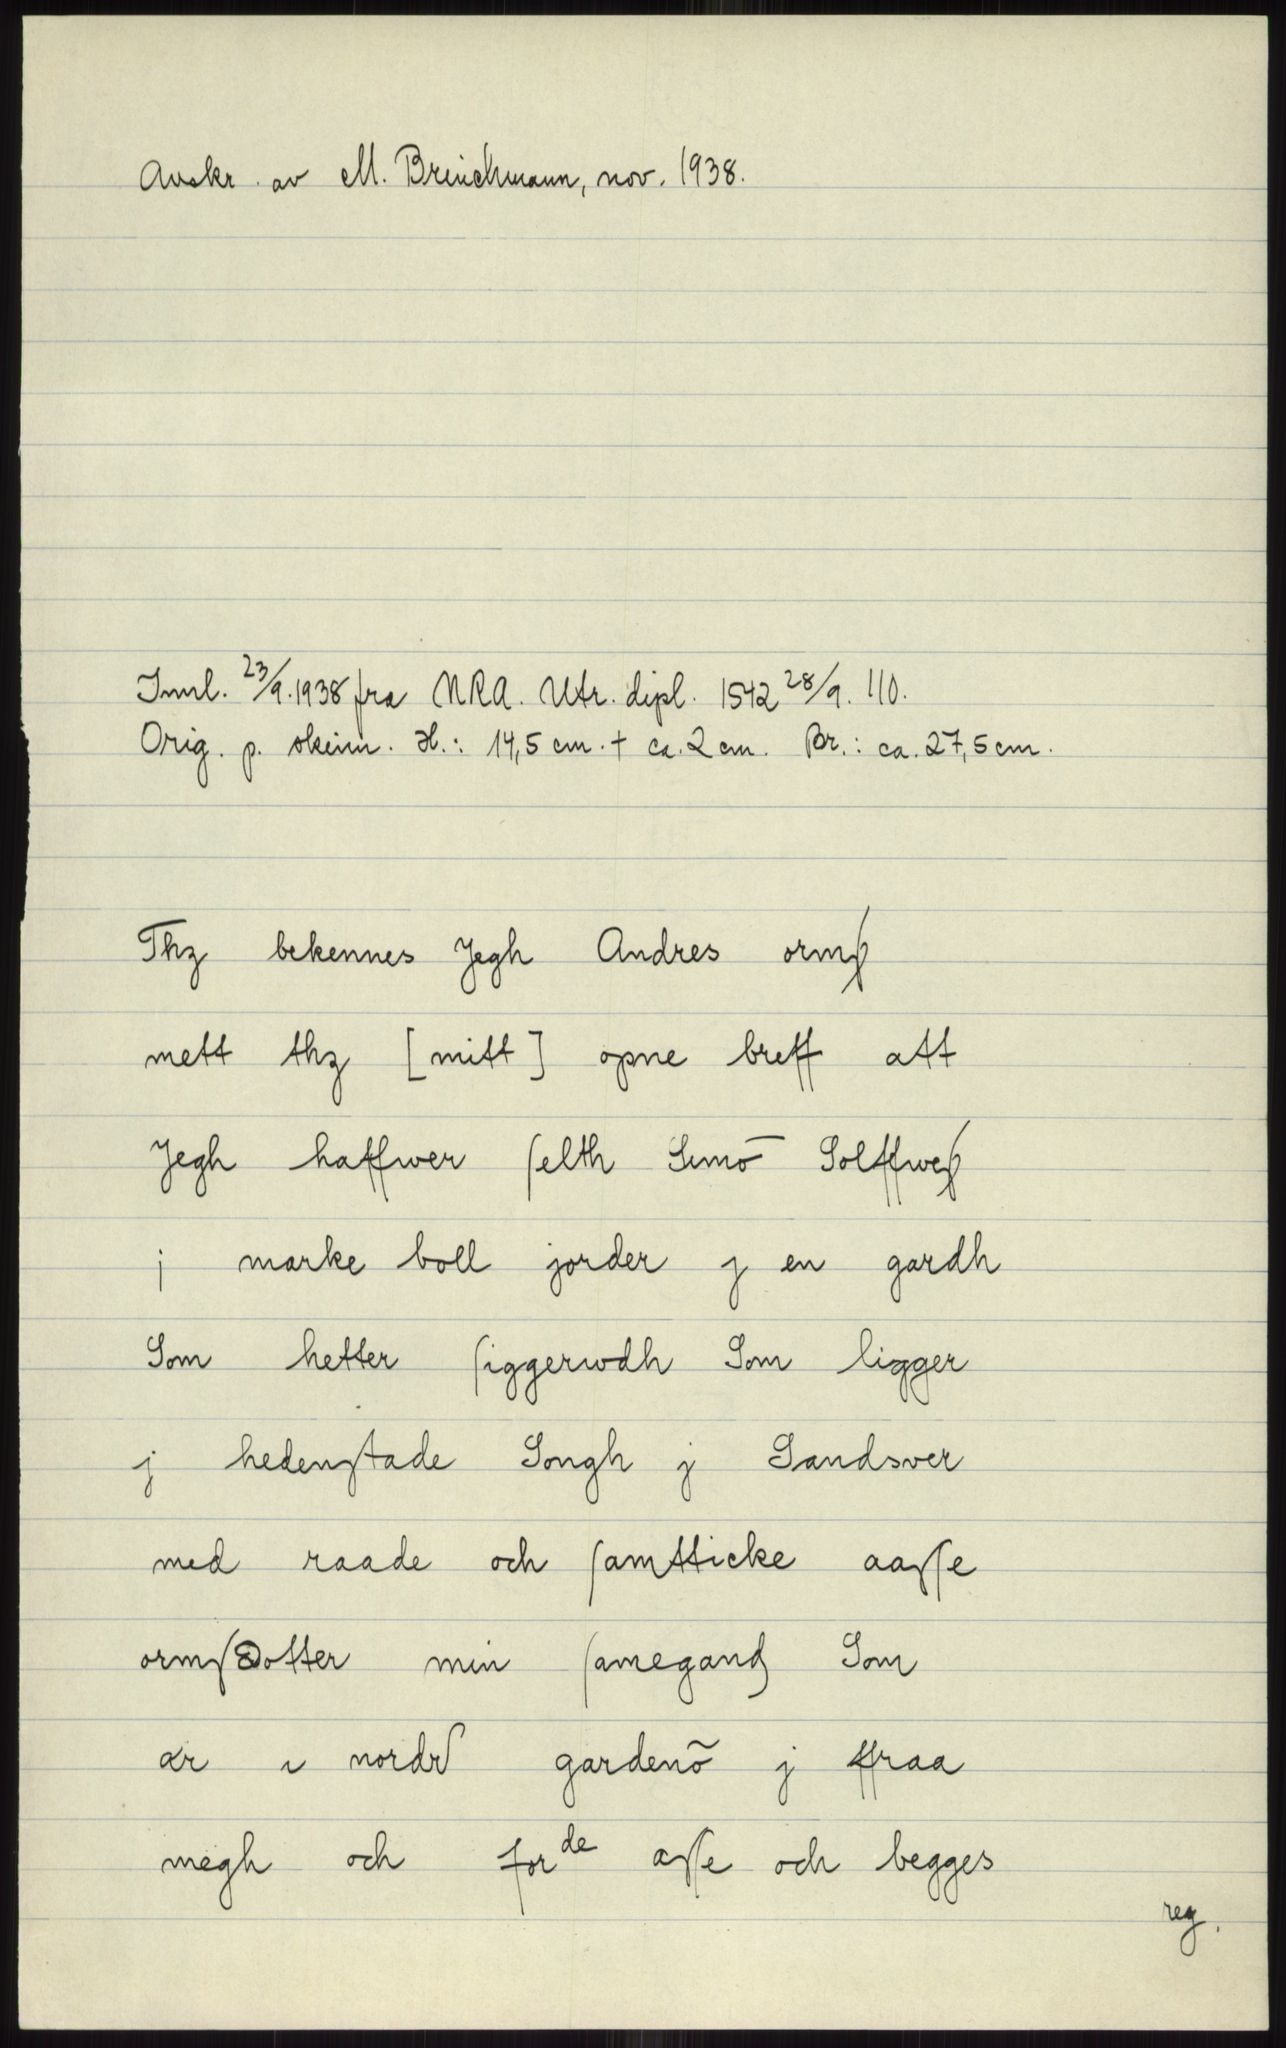 Avskr. av M. Brinchmann, nov. 1938.
Innl. 23/9. 1938 fra NRA. Utr. dipl. 1542 28/9. 110.
Orig. p. skinn. H.: 14,5 cm. + ca. 2 cm. Br.: ca. 27,5 cm.
Thz bekennes Jegh Andres ormſ
mett thz [mitt] opne breff att
Jegh haffwer ſelth Simō Solffweſ
j marke boll jorder j en gardh
Som hetter ſiggerwdh Som ligger
j hedenſtade Songh j Sandsver
med raade och ſamtticke aaſſe
ormſdotter min ſamegang Som
ær i nordr gardenō j ffraa
megh och forde aſſe och begges
reg.